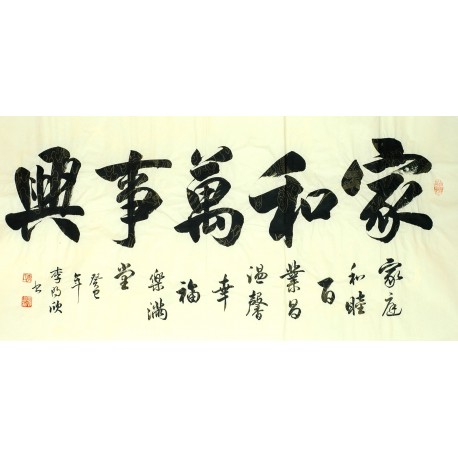 家和萬事興
家庭
和睦
百
業昌
温馨
幸
福
樂滿
堂
癸巳
年
李 欣
書